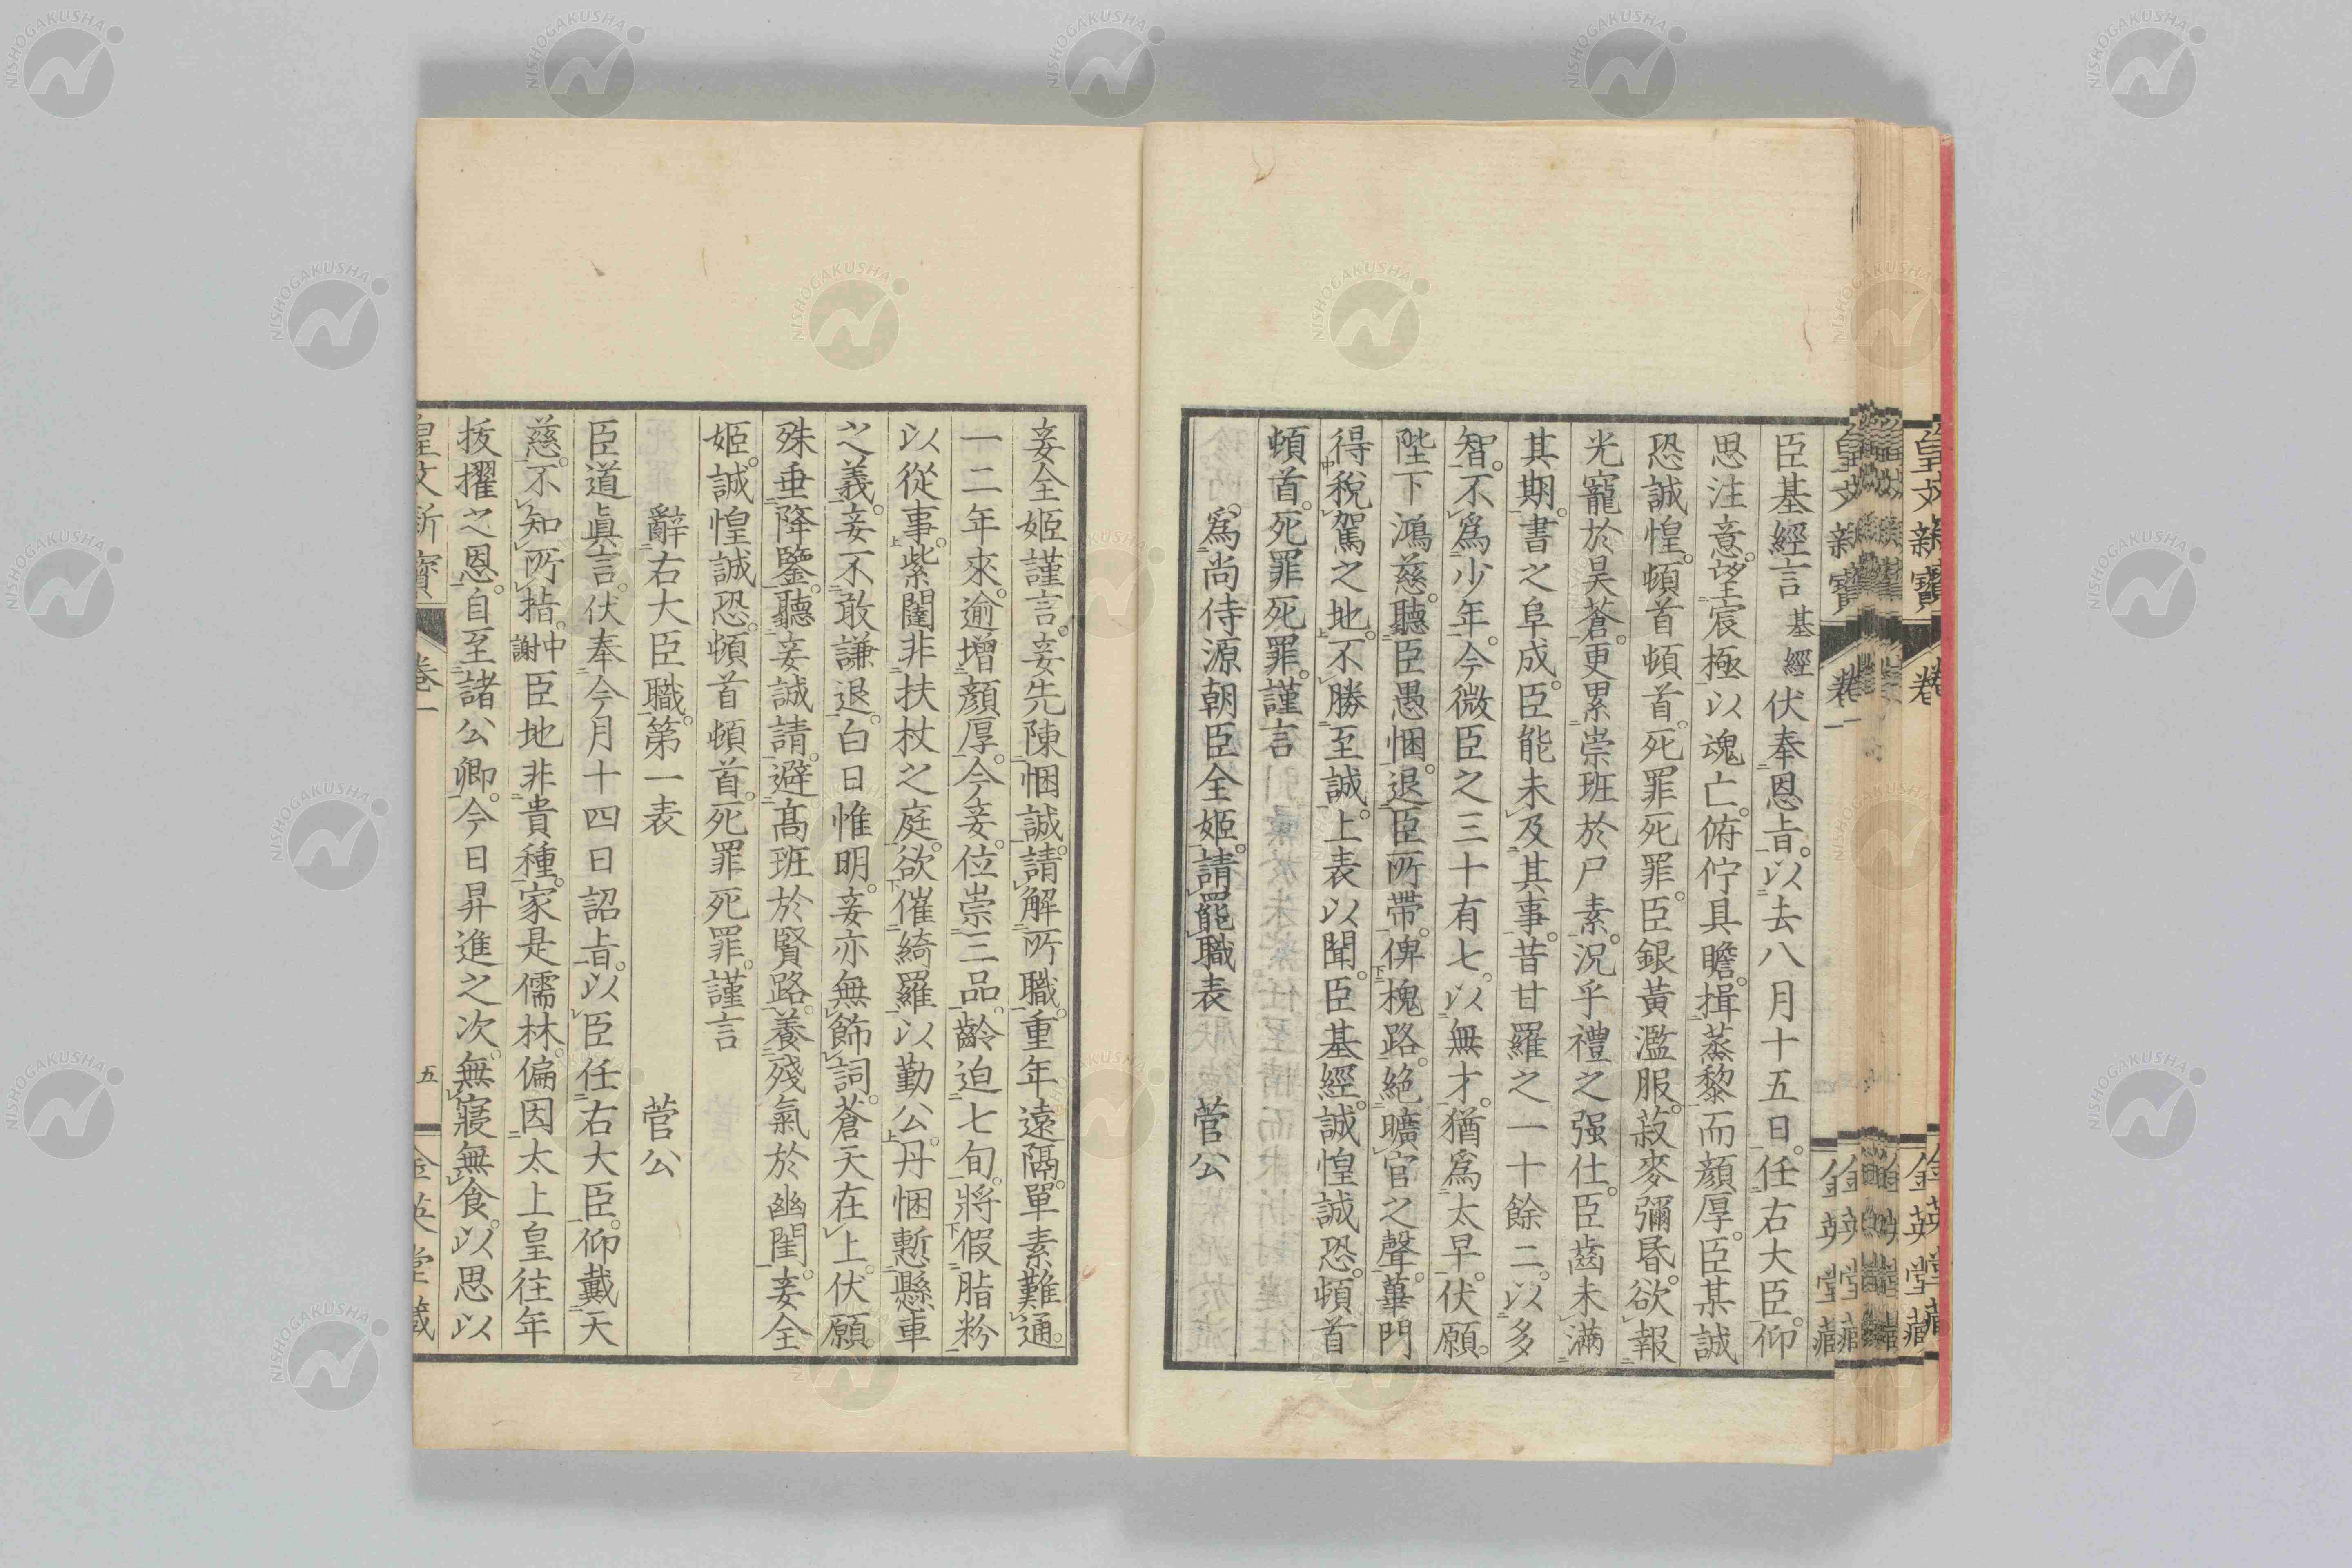 臣基經言基經伏奉恩旨。以去八月十五日。任右大臣。仰
思注意。望宸極以魂亡。俯佇具瞻。揖蒸黎而顔厚。臣某誠
恐誠惶。頓首頓首。死罪死罪。臣銀黃濫服。菽麥彌昏。欲報
光寵於昊蒼。更累崇班於尸素。況乎禮之强仕。臣齒未滿
其期。書之阜成。臣能未及其事。昔甘羅之一十餘二。以多
智。不爲少年。今微臣之三十有七。以無才。猶爲太早。伏願。
陛下鴻慈。聽臣愚悃。退臣所帶。俾槐路。絶曠官之聲。蓽門
得稅駕之地。不勝至誠。上表以聞。臣基經。誠惶誠恐。頓首
頓首。死罪死罪。謹言
爲尚侍源朝臣全姬。請罷職表 菅公
妾全姬謹言。妾先陳悃誠。請解所職。重年遠隔。單素難通。
一二年來。逾增顔厚。今妾。位崇三品。齡迫七旬。將假脂粉
以從事。紫闥非扶杖之庭。欲催綺羅以勤公。丹悃慙懸車
之義。妾不敢謙退。白日惟明。妾亦無飾詞。蒼天在上。伏願
殊垂降鑒。聽妾誠請。避高班於賢路。養殘氣於幽閨。妾全
姬。誠惶誠恐。頓首頓首。死罪死罪。謹言
辭右大臣職。第一表 菅公
臣道眞言。伏奉今月十四日詔旨。以臣任右大臣。仰戴天
慈。不知所措。中謝臣地非貴種。家是儒林。偏因太上皇往年
拔擢之恩。自至諸公卿。今日昇進之次。無寢無食。以思以
皇文新寶 卷一 五 金英堂藏